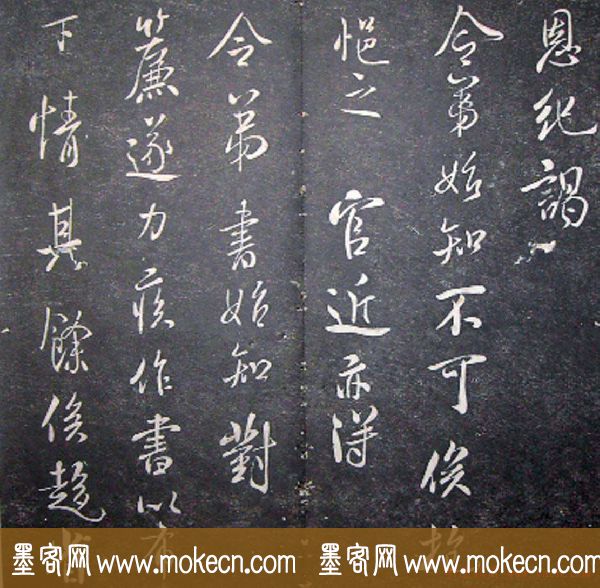 恩纪谒
令弟始知不可俟
悒之 官近亦得
令弟書始知對
簾遂力疾作書以布
下情其餘俟趍
墨客网 www.mokecn.com 墨客网 www.mokecn.com